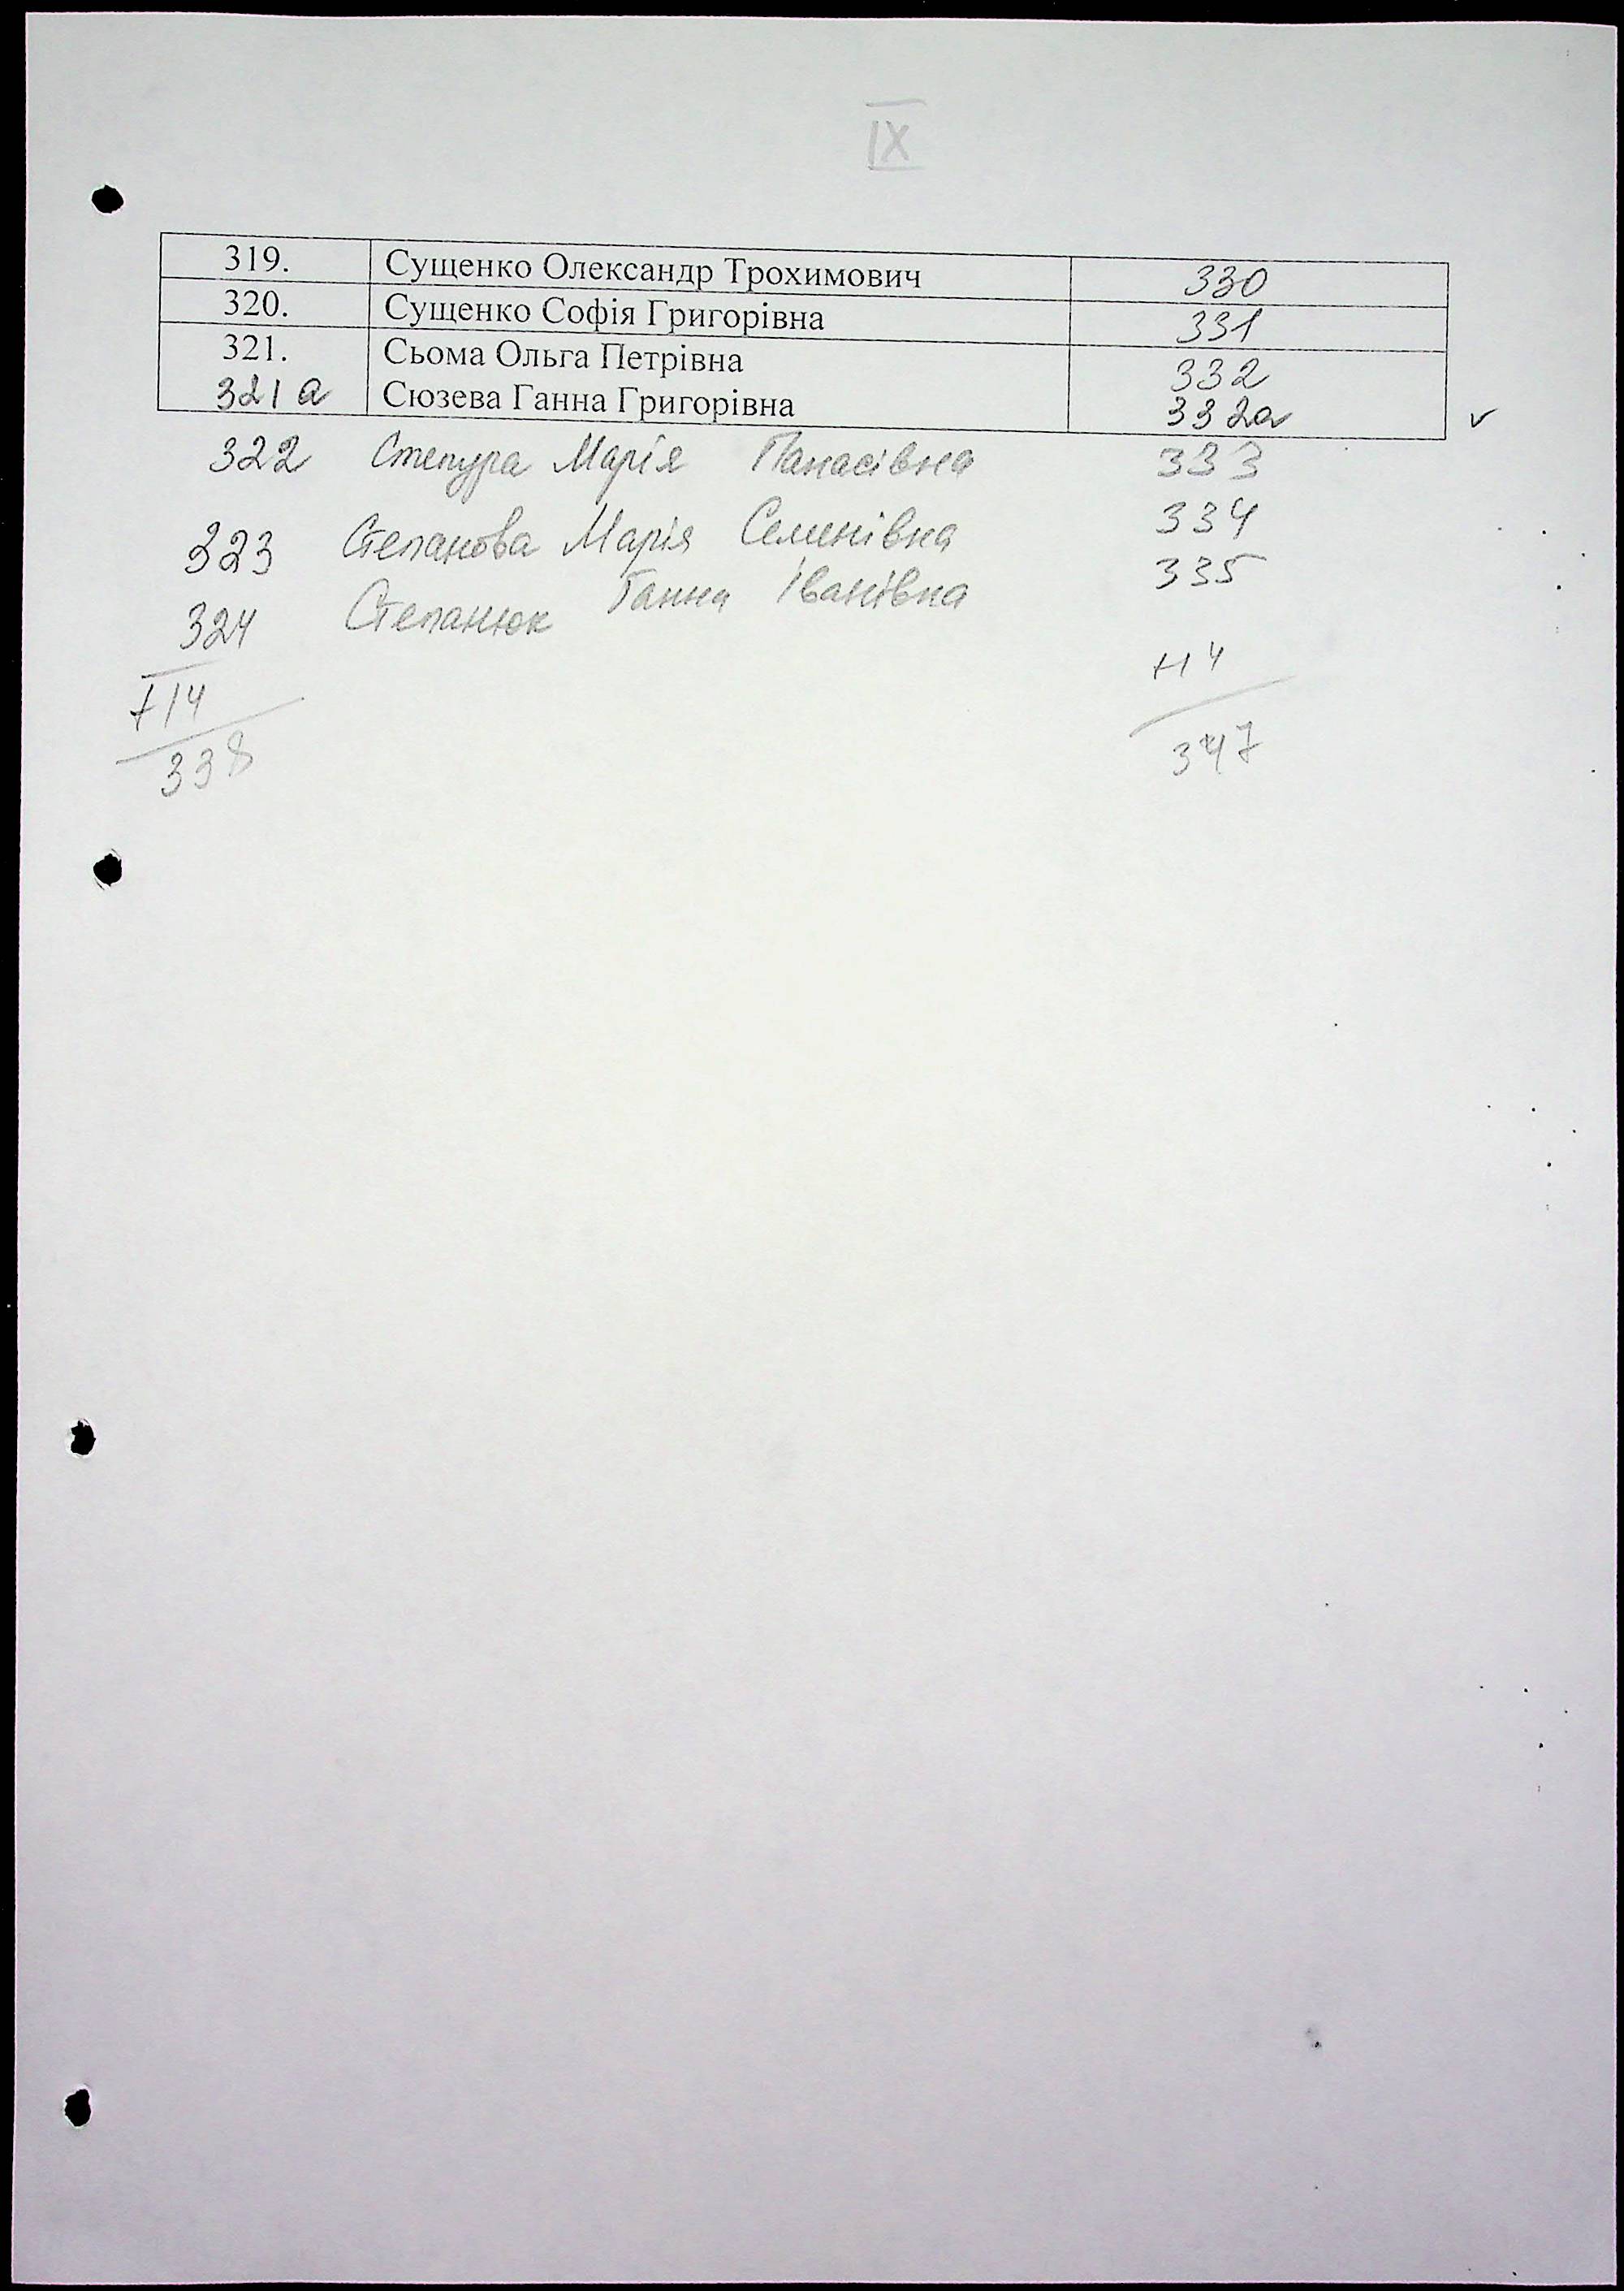 IX
319. Сущенко Олександр Трохимович 330
320. Сущенко Софія Григорівна 331
321. Сьома Ольга Петрівна 332
321а Сюзева Ганна Григорівна 332а ✓
322 Степура Марія Панасівна 333
323 Степанова Марія Семенівна 334
324 Степанюк Ганна Іванівна 335
+14 +14
338 347